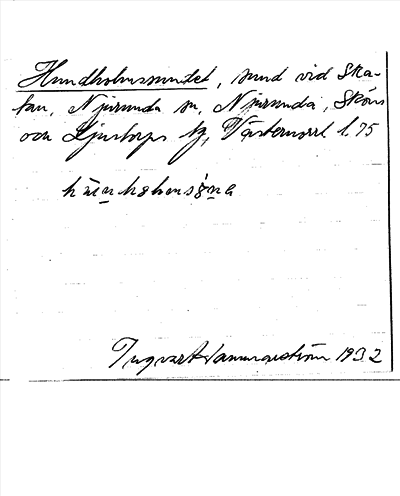 Hundholmssundet, sund vid Ska-
tan, Njurunda sn, Njurunda, Sköns
och Ljustorps tg, Västernorrl l. 75
Ingvar Hammarström 1932